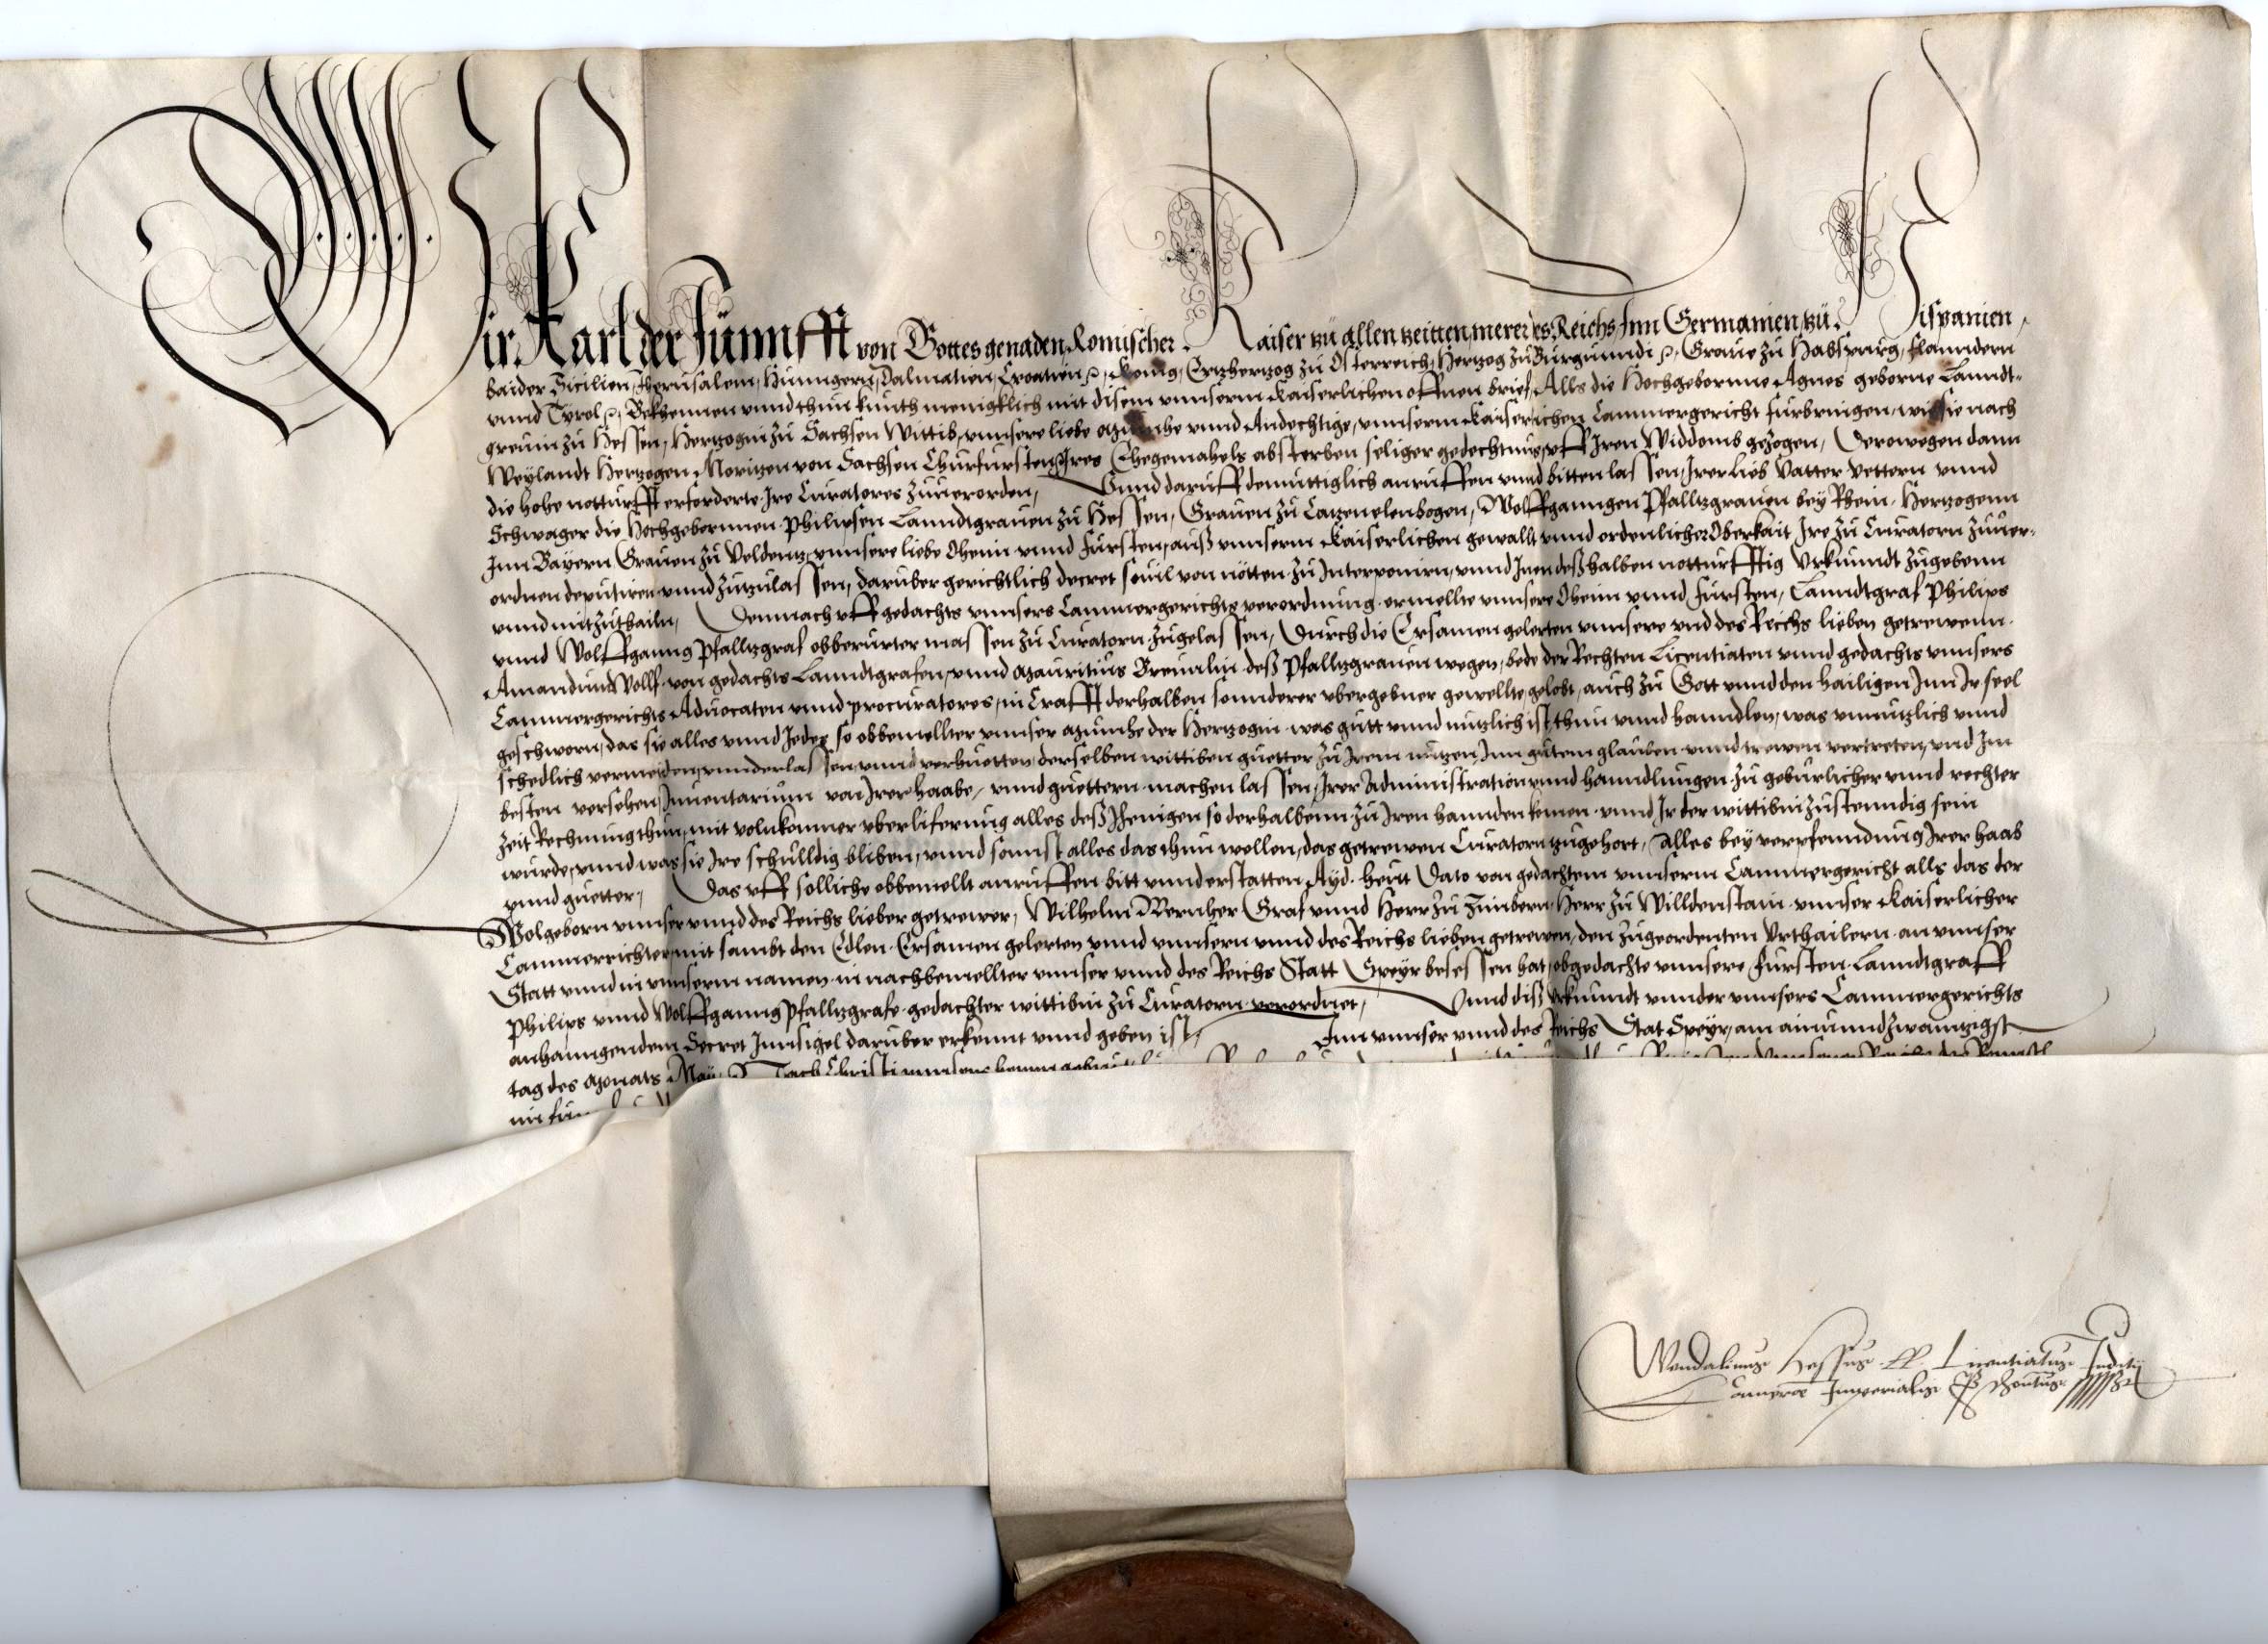 Wir Karl der Fünnfft von Gottes genaden Romischer Kaiser zü allen zeitten merer des Reichs Inn Germanien zü Hispanien
baider Sicilien, Jherusalem, Hünngern, Dalmatien, Croatien ꝛc, König, Ertzhertzog zü Osterreich, Hertzog zü Bürgünndi ꝛc, Graue zü Habspurg, Flanndern
vnnd Tyrol ꝛc, Bekhennen vnnd thun künth menigklich mit disem vnnserm Kaiserlichen offnen brief, Alls die Hochgebornne Agnes geborne Lanndt-
greuin zü Hessen, Hertzogin zü Sachsen Wittib, vnnsere liebe Mümhe vnnd Andechtige, vnnserm Kaiserlichen Cammergericht fürbringen, wie sie nach
Weylandt Hertzogen Moritzen von Sachsen Chürfürsten Ires Ehegemahels absterben seliger gedechtnüs, vff Iren Widdomb gezogen, Derowegen dann
die hohe notturfft erforderte Ire Curatores züuerorden, Vnnd daruff demüttiglich anrüffen vnnd bitten lassen, Irer lieb Vatter Vettern vnnd
Schwager die Hochgebornnen Philipsen Lanndtgrauen zü Hessen, Grauen zü Catzenelenbogen, Wolffganngen Pfalltzgrauen bey Rhein, Hertzogenn
Inn Bayern Grauen zü Veldentz, vnnsere liebe Oheim vnnd Fürsten, auß vnnserm Kaiserlichen gewallt vnnd ordenlicher Oberkait Ire zü Curatorn züuer-
ordnen deputiren vnnd zützülassen, darüber gerichtlich decret souil von nötten zü Interponirn, vnnd Inen deßhalben notturfftig Vrkünndt zügebenn
vnnd mitzüthailn, Demnach vff gedachts vnnsers Cammergerichts verordnüng ermellte vnnsere Oheim vnnd Fürsten, Lanndtgraf Philips
vnnd Wolffganng Pfalltzgraf obberürter massen zü Curatorn zügelassen, Dürch die Ersamen gelerten vnnsere vnd des Reichs lieben getrewenn
Amandum Wolff von gedachts Lanndtgrafen, vnnd Mauritius Breünlin deß Pfalltzgrauen wegen, bede der Rechten Licentiaten vnnd gedachts vnnsers
Cammergerichts Aduocaten vnnd procüratores, in Crafft derhalben sonnderer vbergebner gewellte, gelobt, auch zü Gott vnnd den hailigen Inn Ir seel
geschworn, das sie alles vnnd Jedes so obbemellter vnnser Mümhe der Hertzogin was gütt vnnd nützlich ist, thün vnnd hanndlen, was vnnützlich vnnd
schedlich vermeiden, vnnderlassen, vnnd verhüetten, derselben wittiben güetter zü Irem nützen Inn gütem glauben vnnd trewen vertreten, vnnd Im
besten versehen, Inuentarium von Irer haabe, vnnd güettern machen lassen, Irer Administration vnnd hanndlüngen zü gebürlicher vnnd rechter
zeit Rechnüng thün, mit volnkomner vberliferüng alles deß Jhenigen so derhalbenn zü Iren hannden komen vnnd Ir der wittibin züstenndig sein
würde, vnnd was sie Ire schülldig bliben, vnnd sonnst alles das thün wellen, das getrewen Curatorn zügehort, Alles bey verpfenndüng Irer haab
vnnd güetter, Das vff solliche obbemellt anrüffen bitt vnnd erstatten Ayd heüt Dato von gedachtem vnnserm Cammergericht alls das der
Wolgeborn vnnser vnnd des Reichs lieber getrewer, Wilhelm Wernher Graf vnnd Herr zü Zimbern Herr zü Willdenstain vnnser Kaiserlicher
Cammerrichter, mit sambt den Edlen Ersamen gelerten vnnd vnnsern vnnd des Reichs lieben getrewen, den zügeordenten Vrthailern an vnnser
Statt vnnd in vnnserm namen in nachbemellter vnnser vnnd des Reichs Statt Speyr besessen hat, obgedachte vnnsere Fürsten Lanndtgraff
Philips vnnd Wolffganng Pfalltzgrafe gedachter wittibin zü Curatorn verordnet, Vnnd diß Vrkünndt vnnder vnnsers Cammergerichts
anhanngendem Secret Innsigel darüber erkennt vnnd geben ist, Inn vnnser vnnd des Reichs Stat Speyr, am ainünndzwaintzigst
tag des Monats May, Nach Christi vnnsers herren gebürt
Wendalinus Hessus LL Licentiatus Juditii
Camerae Imperialis